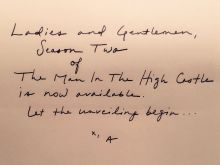 Ladies and Gentlemen,
Season Two
of
The Man In The High Castle
is now available.
Let the unveiling begin...
x, A